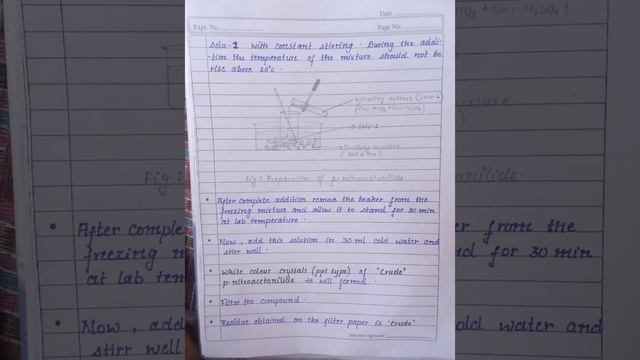 Date
Expt. No.
Page No.
Solu-2 with constant stirring. During the addi-
-tion the temperature of the mixture should not be
rise above 20°C.
Nitrating mixture (Solu-2)
(Conc. HNO3 + Conc. H2SO4)
Solu-1
Freezing mixture
Fig: Preparation of p-nitroacetanilide
• After complete addition remove the beaker from the
freezing mixture and allow it to stand for 30 min
at lab temperature.
• Now, add this solution in 30 ml cold water and
stirr well.
• White colour crystals (ppt type) of "Crude"
p-nitroacetanilide is will formed.
• Filter the compound.
• Residue obtained on the filter paper is "Crude"
Teacher's Signature